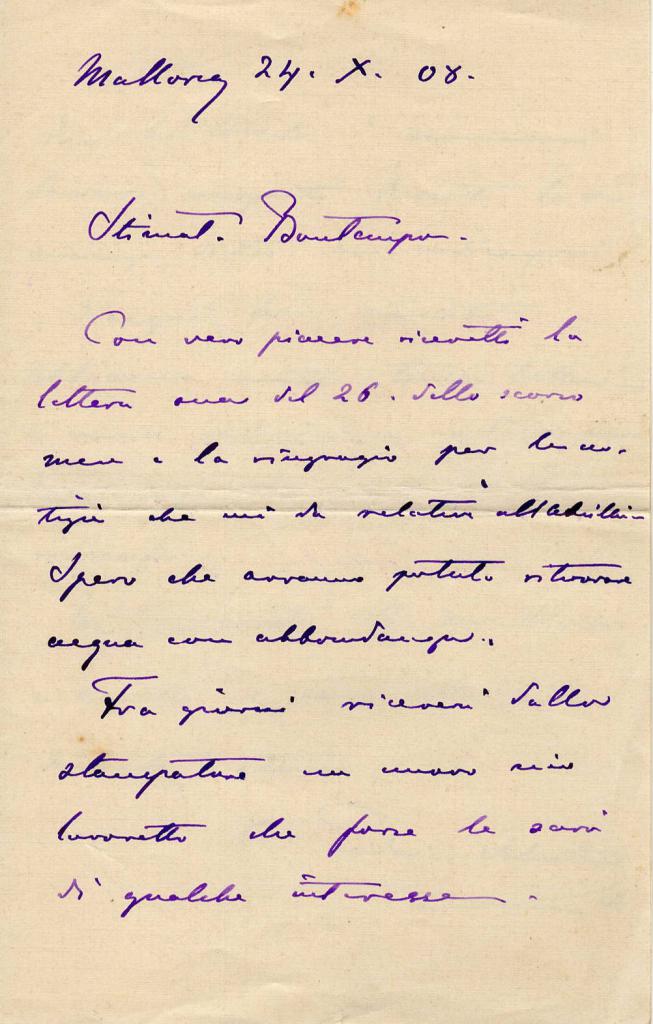 Mallorca 24. X. 08.
Stimat. Bontempo.
Con vero piacere ricevetti la
lettera sua del 26. dello scorso
mese e la ringrazio per le no-
tizie che mi da relative
Spero che avranno potuto ritrovare
acqua con abbondanza.
Fra giorni riceverà dallo
stampatore un nuovo mio
lavoretto che forse le sarà
di qualche interesse.